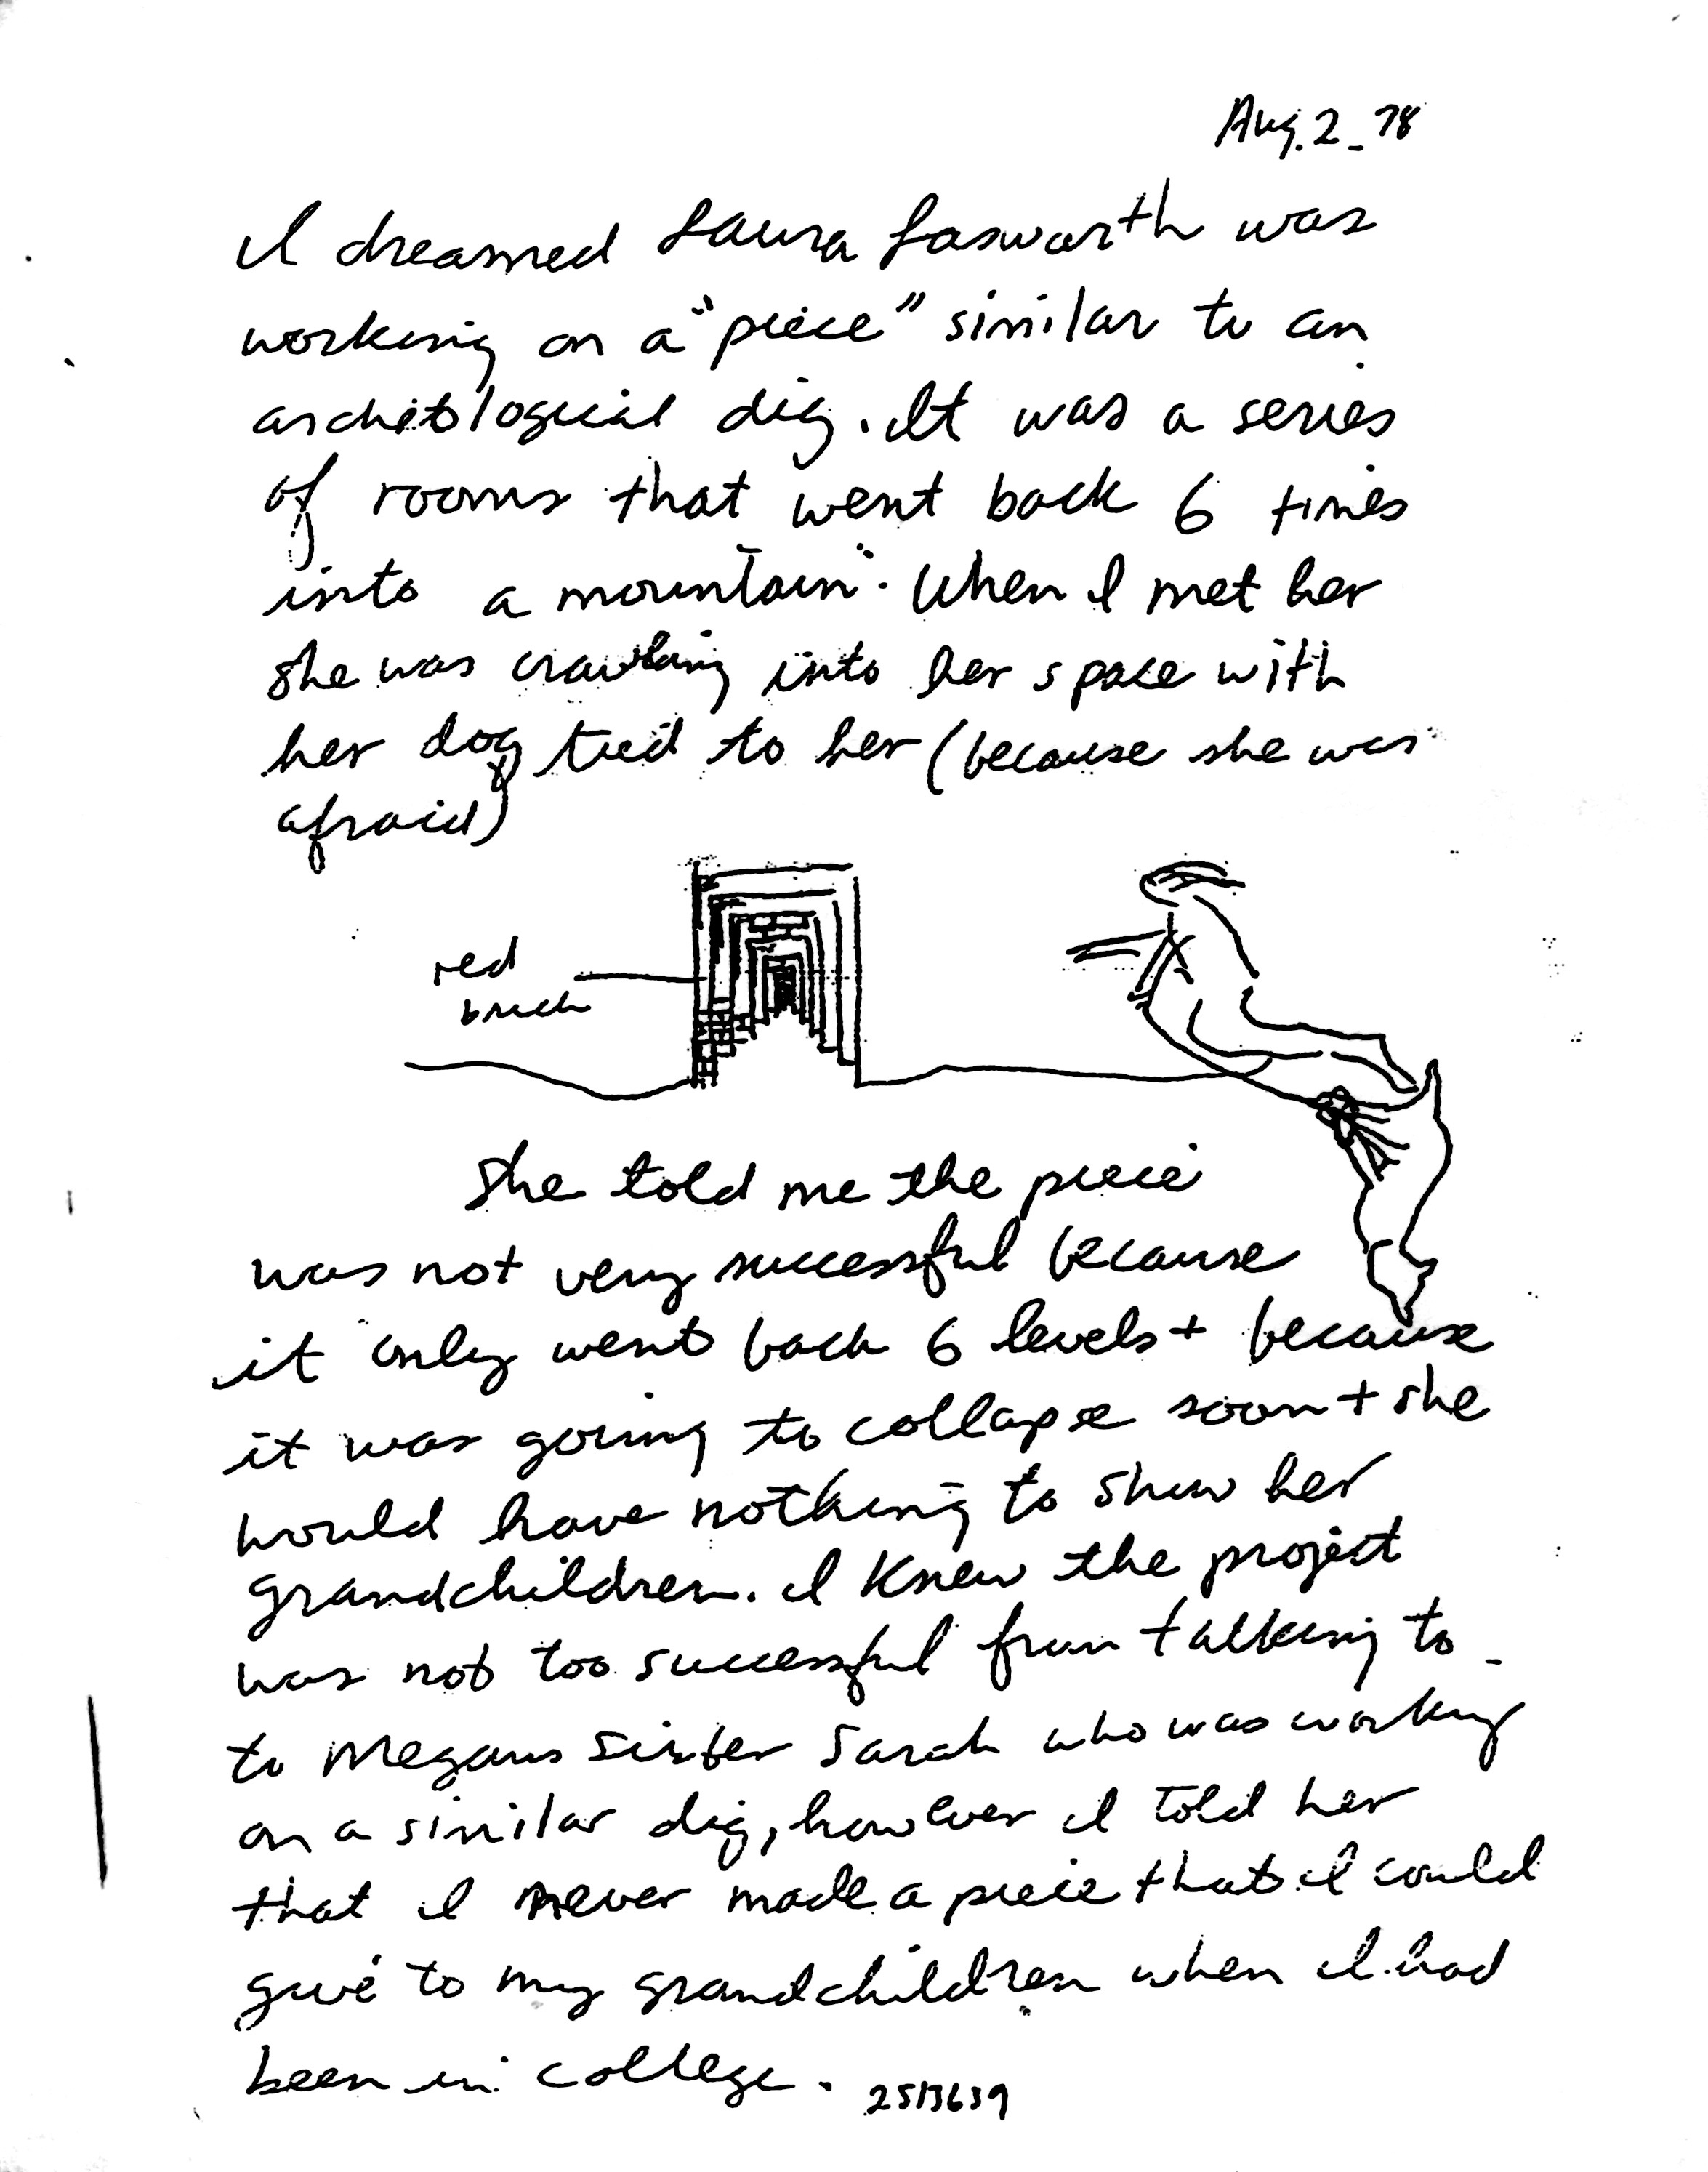 Aug. 2_78
I dreamed Laura Lasworth was
working on a "piece" similar to an
archetological dig. It was a series
of rooms that went back 6 times
into a mountain. When I met her
she was crawling into her space with
her dog tied to her (because she was
afraid)
red
brick
She told me the piece
was not very successful because
it only went back 6 levels + because
it was going to collapse soon + she
would have nothing to show her
grandchildren. I knew the project
was not too successful from talking to
to Megans sister Sarah who was working
on a similar dig, however I told her
that I never made a piece that I could
give to my grandchildren when I had
been in college.